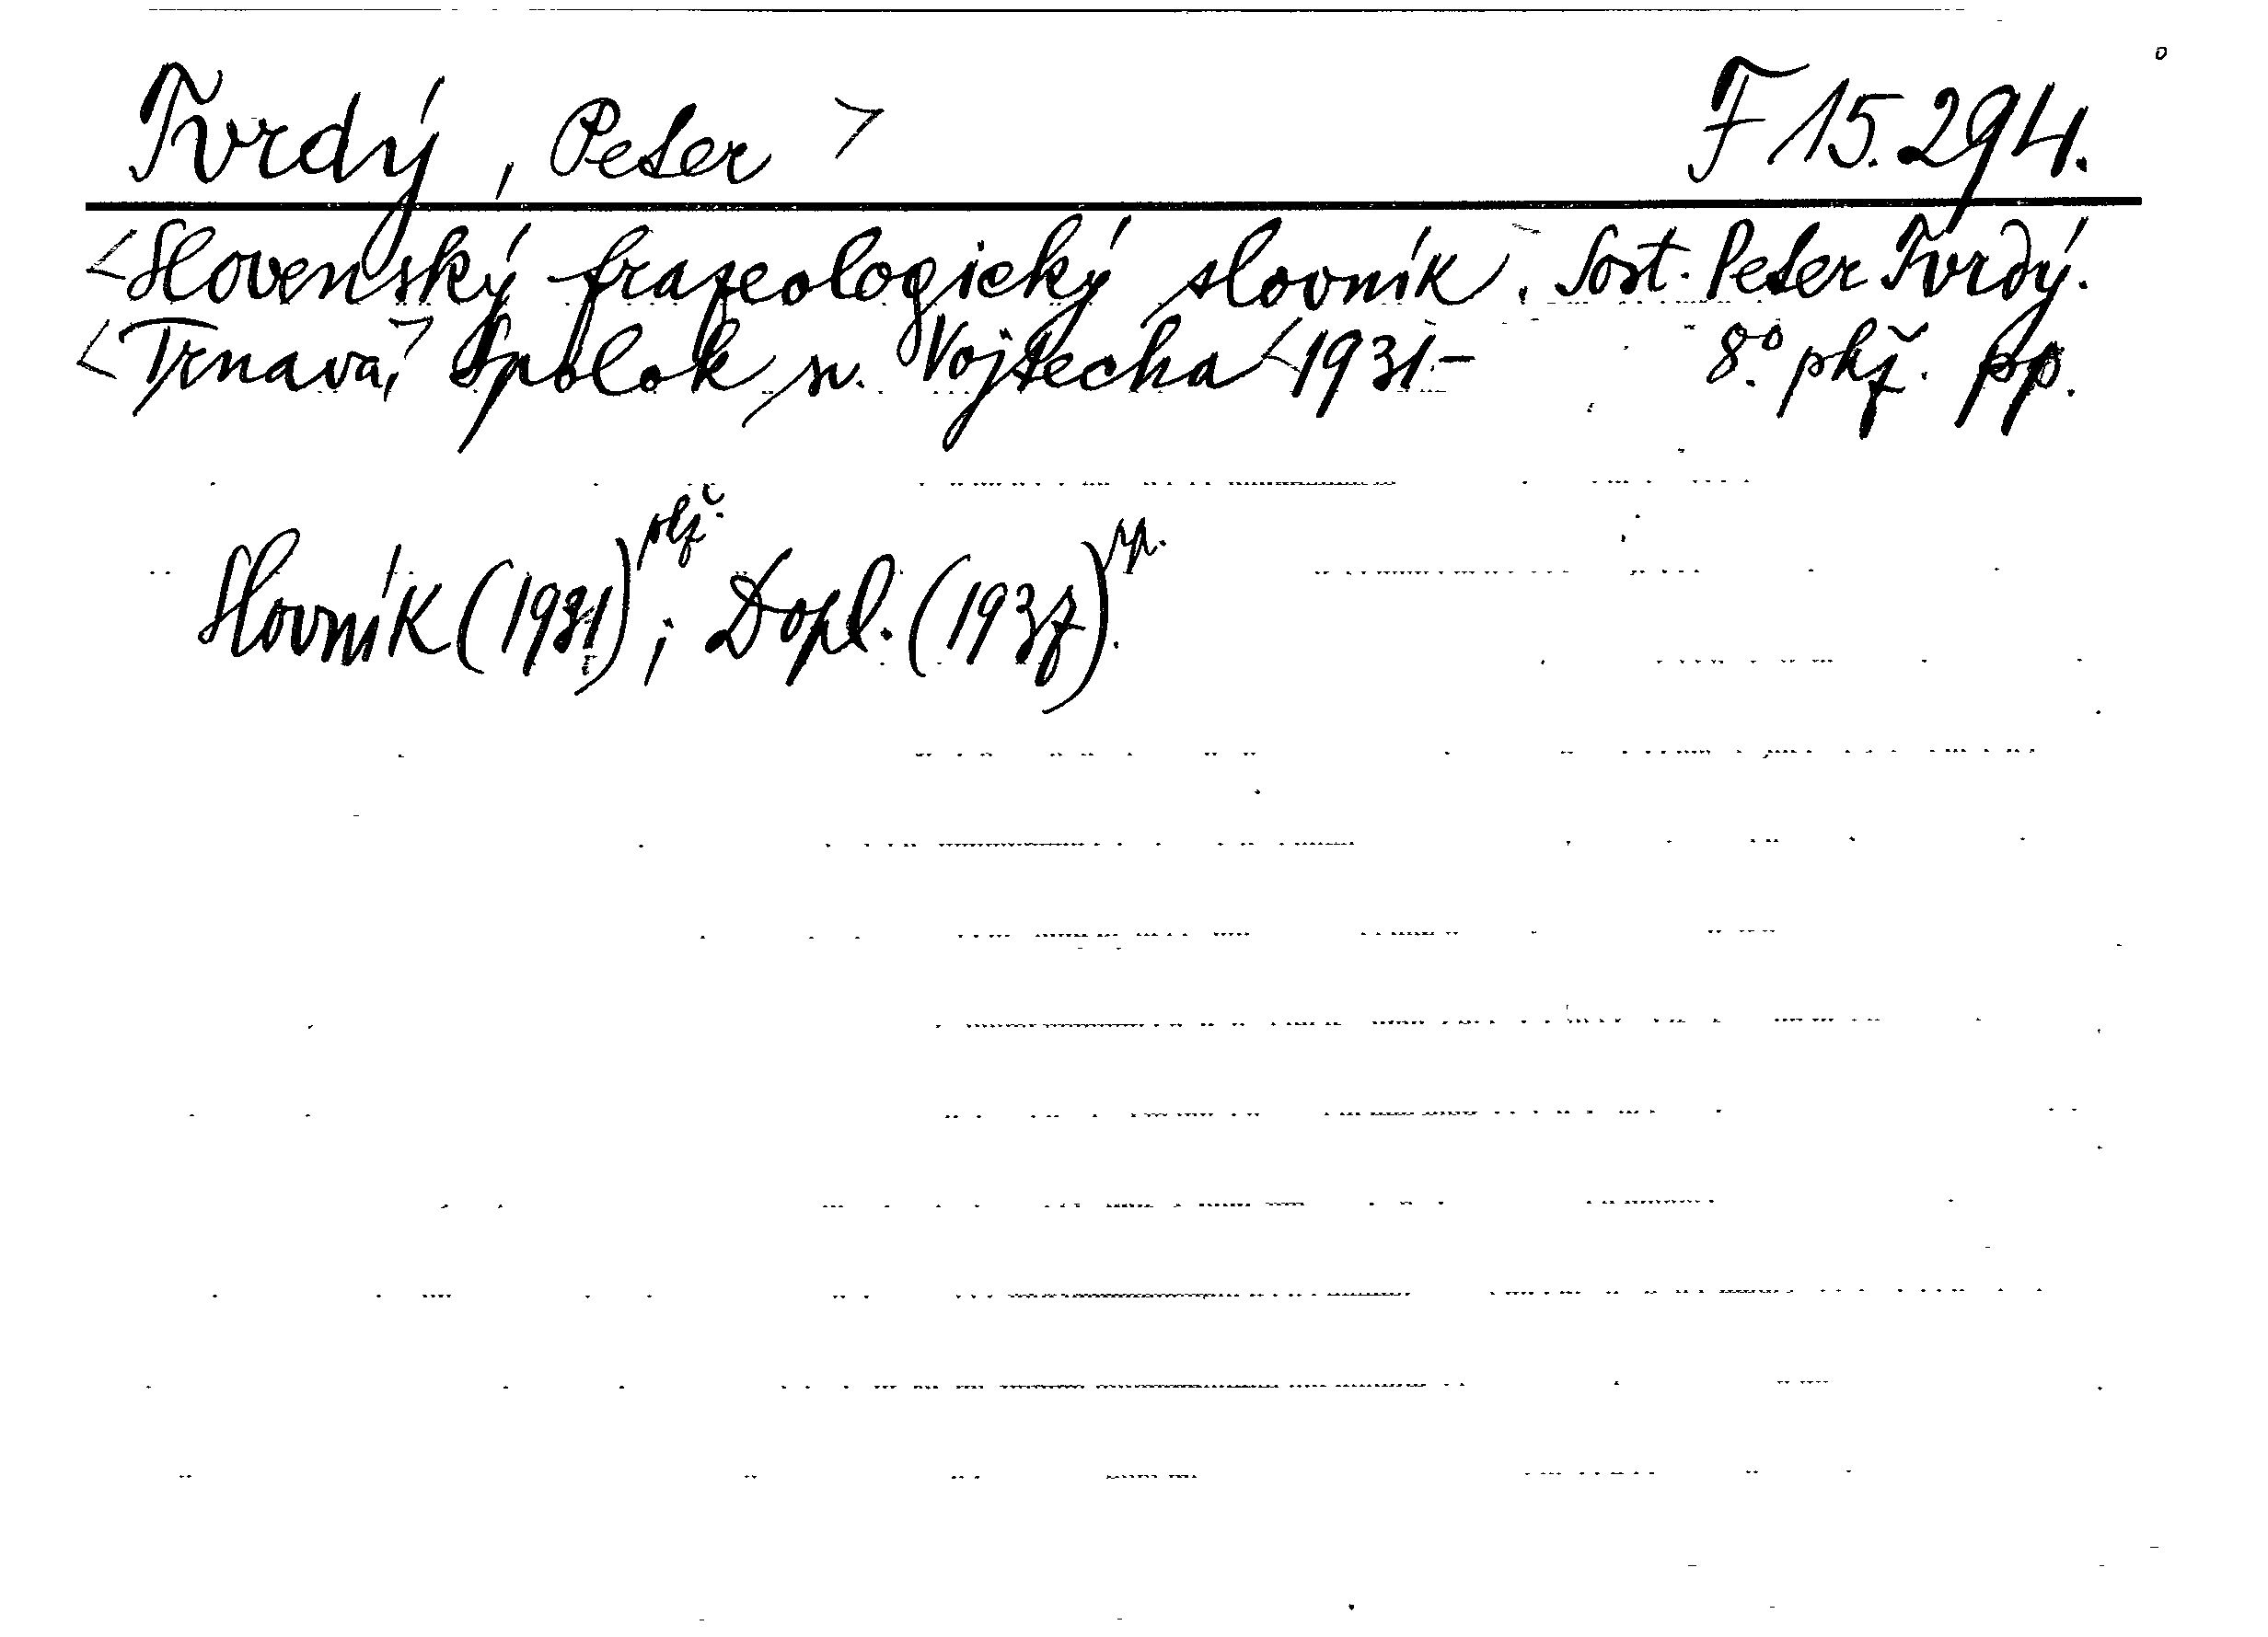 Tvrdý, Peter > F 15.294.
<Slovenský frazeologický slovník. Sost. Peter Tvrdý.
<Trnava,> Spolok sv. Vojtecha <1931- 8.° pkž. pp.
Slovník (1931) pkž.; Dopl. (1937)